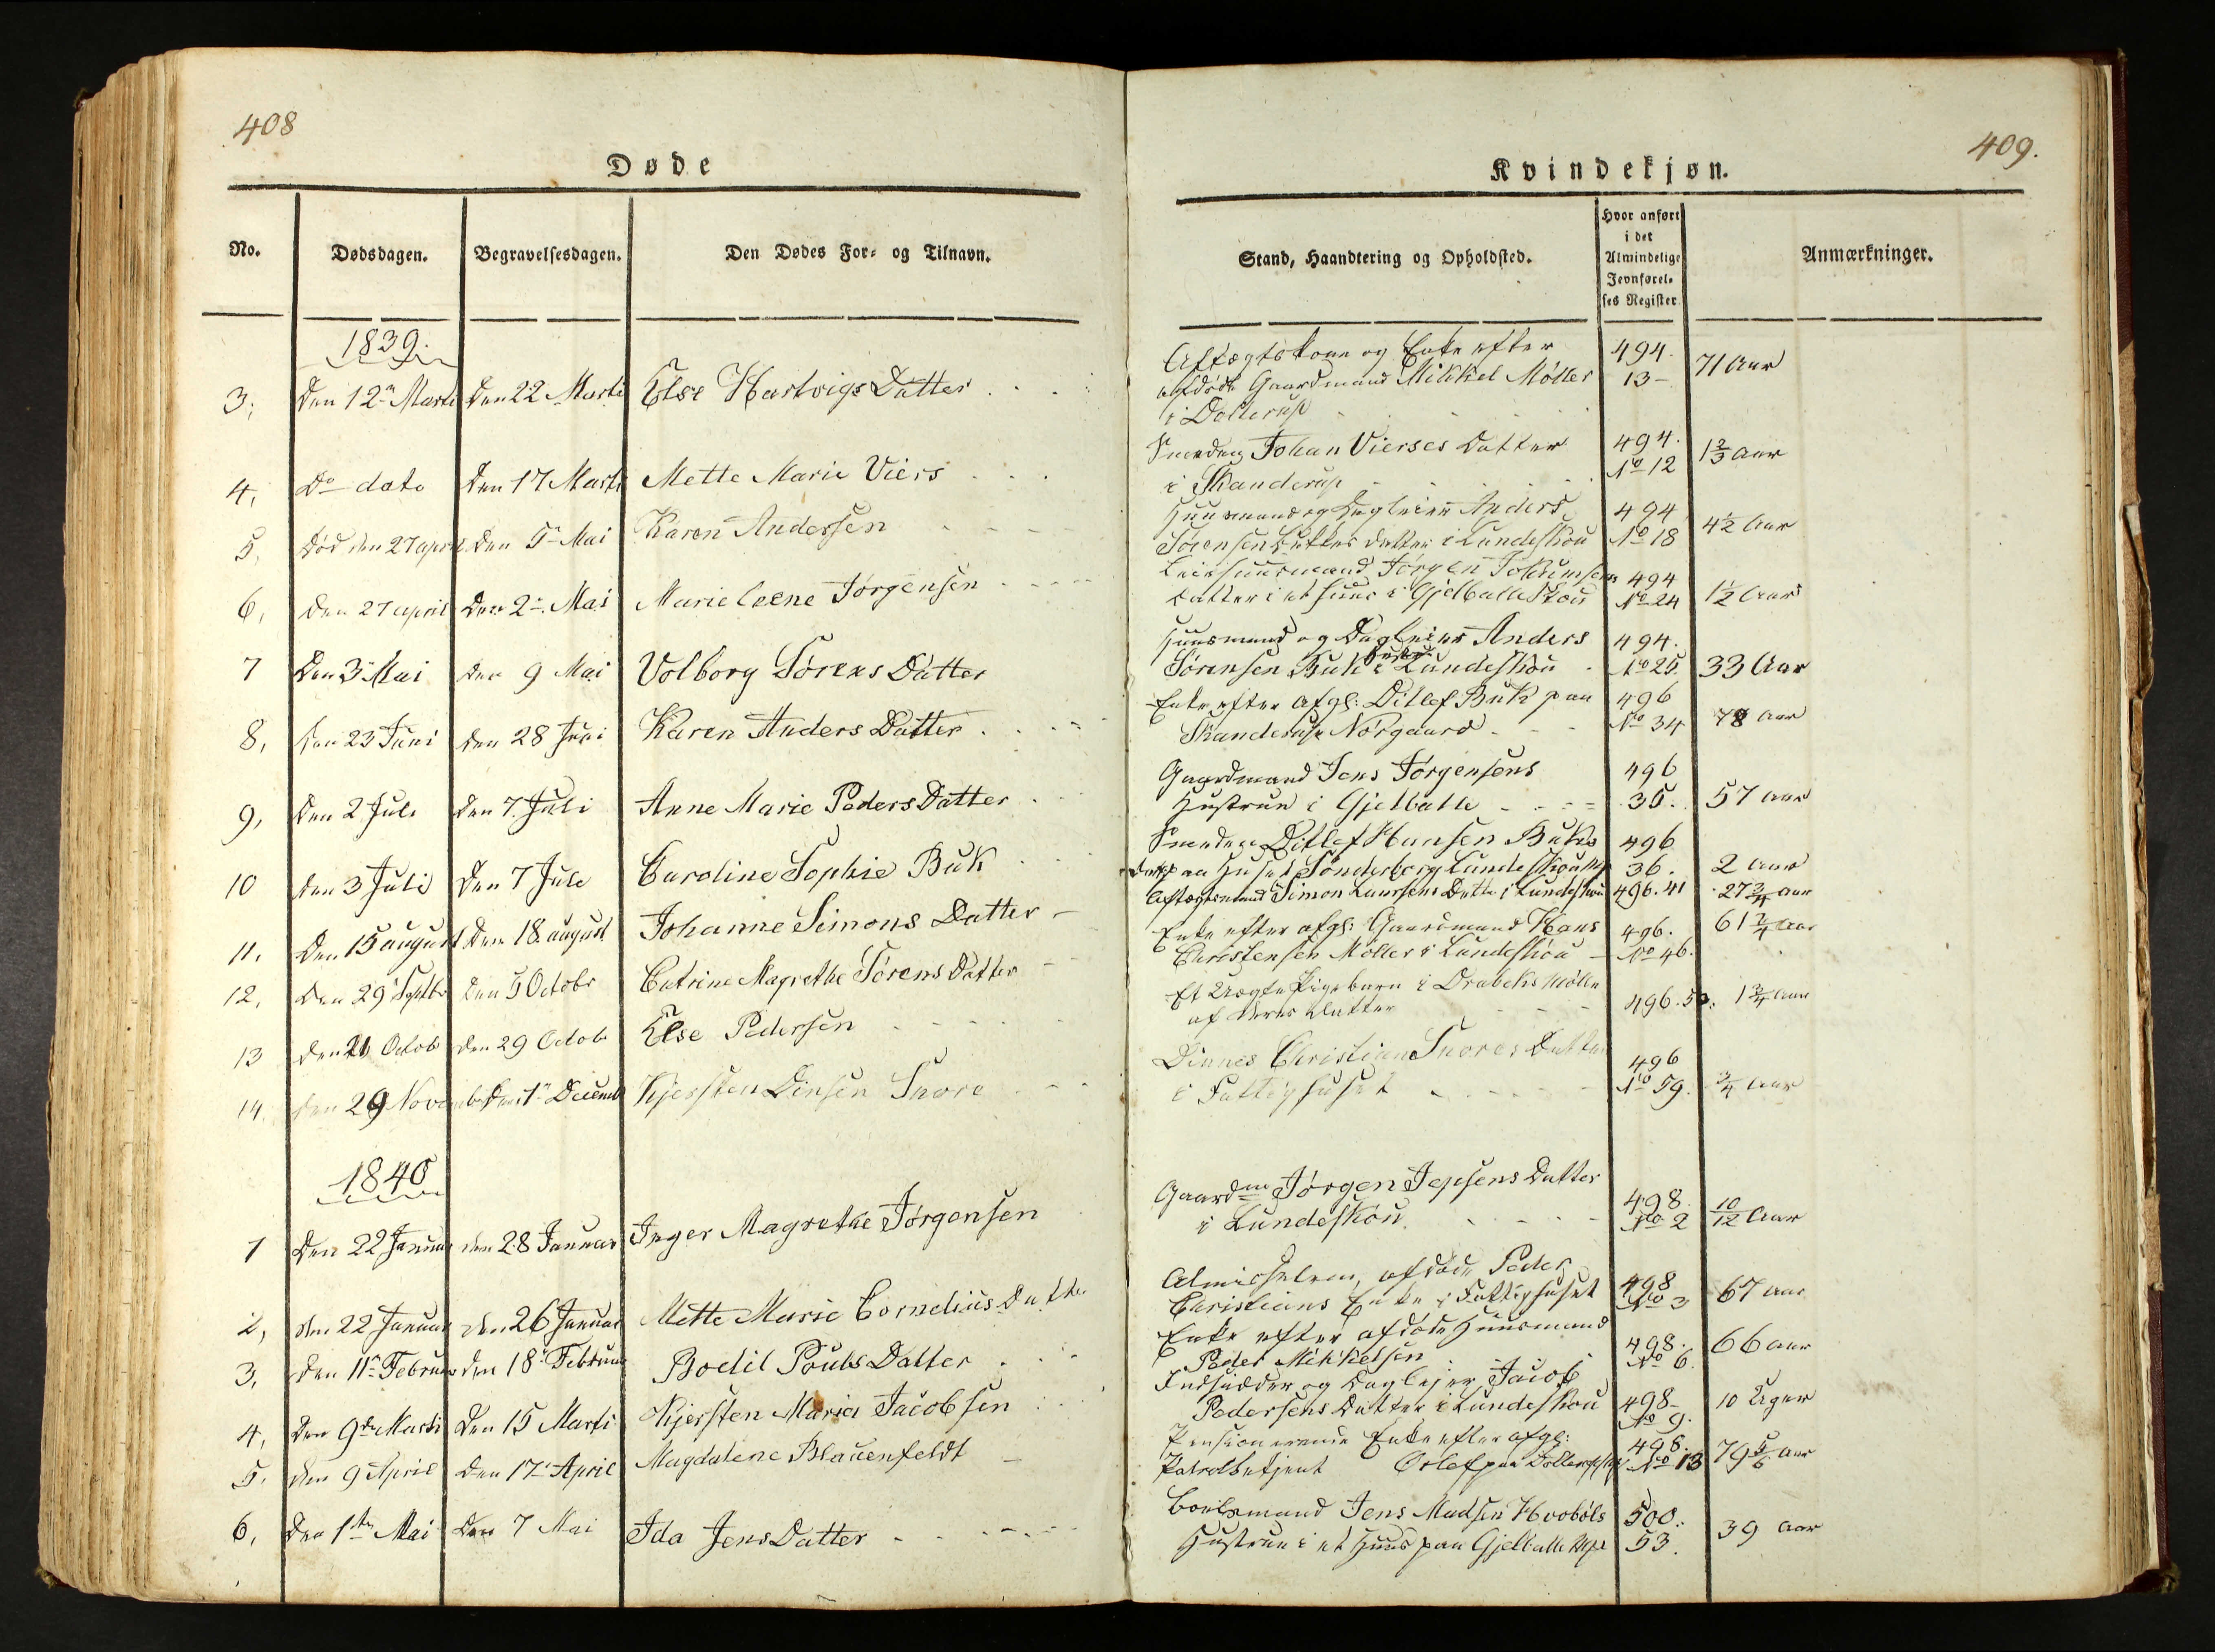 408
Døde
No.
Dødsdagen.
Begravelsesdagen.
Den Dødes For- og Tilnavn.
1839.
3, Den 12te Marti Den 22 Marti Else Hartvigs Datter
4, Do dato Den 17 Marti Mette Marie Viers
5, Død den 27 april Den 5te Mai Karen Andersen
6, Den 27 april Den 2te Mai Marie Leene Jørgensen
7 Den 3te Mai den 9 Mai Volborg Sørens Datter
8, den 23 Juni den 28 Juni Karen Anders Datter
9, Den 2 Juli Den 7. Juli Anne Marie Peders Datter
10 den 3 Juli Den 7 Juli Caroline Sophie Buk
11. Den 15 august Den 18. august Johanne Simons Datter
12, Den 29 Septbr Den 5 Octobr Catrine Magrethe Sørens Datter
13 Den 21 Octob den 29 Octob Else Pedersen
14. den 29 Novemb Den 1te Decemb Kjersten Dinsen Snore
1840
1 Den 22 Januar den 28 Januar Inger Magrethe Jørgensen
2, den 22 Januar den 26 Januar Mette Marie Cornelius Datter
3, Den 11te Februar den 18 Februar Bodil Pouls Datter
4, Den 9de Marti Den 15 Marti Kjersten Maria Jacobsen
5. Den 9 April Den 17 April Magdalene Blauenfeldt
6, Den 1ste Mai Den 7 Mai Ida Jens Datter
409.
Kvindekjøn.
Stand, Haandtering og Opholdsted.
Hvor anført
i det
Almindelige
Jevnførel-
ses Register
Anmærkninger.
Aftægtskone og Enke efter 494.
afdøde Gaardmand Mikkel Møller 13- 71 Aar
i Dollerup
Smeden Johan Vierses Datter 494. 1 2/3 Aar
i Skanderup No 12
Huusmand og Dagleier Anders 494
Sørensen Bukkes datter i Lundeskou No 18 4 1/2 Aar
Leiehuusmand Jørgen 494
Datter i et huus i Gjelballe Skou No 24 1/2 Aar
Huusmand og Dagleier Anders 494.
Sørensen Buk i Hustru Lundeskou No 25. 33 Aar
Enke efter afgl: Ditlef Buk paa 496
Skanderup Nørgaard No 34 78 Aar
Gaardmand Jens Jørgensens 496
Hustrue i Gjelballe 35. 57 Aar
Smeden Ditlef Hansen Buks 496
paa Huset Sønderborg 36. 2 Aar
Aftægtsmand Simon Laursens Datter i Lundeskou 496. 41 27 3/4 Aar
Enke efter afgl: Gaardmand Hans 496. 61 3/4 Aar
Christensen Møller i Lundeskou No 46.
Et Uægte Pigebarn i Drabeks Mølle
af Datter 496. 50. 1 3/4 Aar
Dinnes Christian Snores Datter 496
i Fattighuset No 59. 3/4 Aar
Gaardm Jørgen Jepsens Datter 498.
i Lundeskou No 2 10/12 Aar
Almisselem, afdøde Peder 498
Christians Enke i Fattighuset No 3 67 Aar
Enke efter afdøde Huusmand 498. 66 Aar
Peder Mikkelsen No 6.
Indsidder og Dagleier Jacob
Pedersens Datter i Lundeskou 498- No 9. 10 Uger
Pensionerende Enke efter afgl: 498. 79 5/6 Aar
Patrolbetjent Orlef paa No 13
Boelsmand Jens Madsen Hvobøls 500.
Hustrue i et Huus paa Gjelballe 53. 39 Aar